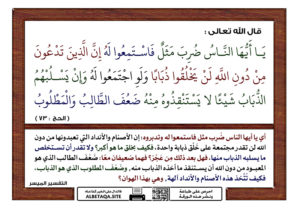 قال الله تعالى :
يَا أَيُّهَا النَّاسُ ضُرِبَ مَثَلٌ فَاسْتَمِعُوا لَهُ إِنَّ الَّذِينَ تَدْعُونَ
مِنْ دُونِ اللَّهِ لَنْ يَخْلُقُوا ذُبَابًا وَلَوِ اجْتَمَعُوا لَهُ وَإِنْ يَسْلُبْهُمُ
الذُّبَابُ شَيْئًا لَا يَسْتَنْقِذُوهُ مِنْهُ ضَعُفَ الطَّالِبُ وَالْمَطْلُوبُ
( الحج : ٧٣ )
أي يا أيها الناس ضُرِب مثل فاستمعوا له وتدبروه: إن الأصنام والأنداد التي تعبدونها من دون
الله لن تقدر مجتمعة على خَلْق ذبابة واحدة، فكيف بخلق ما هو أكبر؟ ولا تقدر أن تستخلص
ما يسلبه الذباب منها، فهل بعد ذلك مِن عَجْز؟ فهما ضعيفان معًا: ضَعُفَ الطالب الذي هو
المعبود من دون الله أن يستنقذ ما أخذه الذباب منه، وضَعُفَ المطلوب الذي هو الذباب،
فكيف تُتَّخذ هذه الأصنام والأنداد آلهة، وهي بهذا الهوان؟
التفسير الميسر
ALBETAQA.SITE
احرص على طباعة
ونشر هذه البطاقة